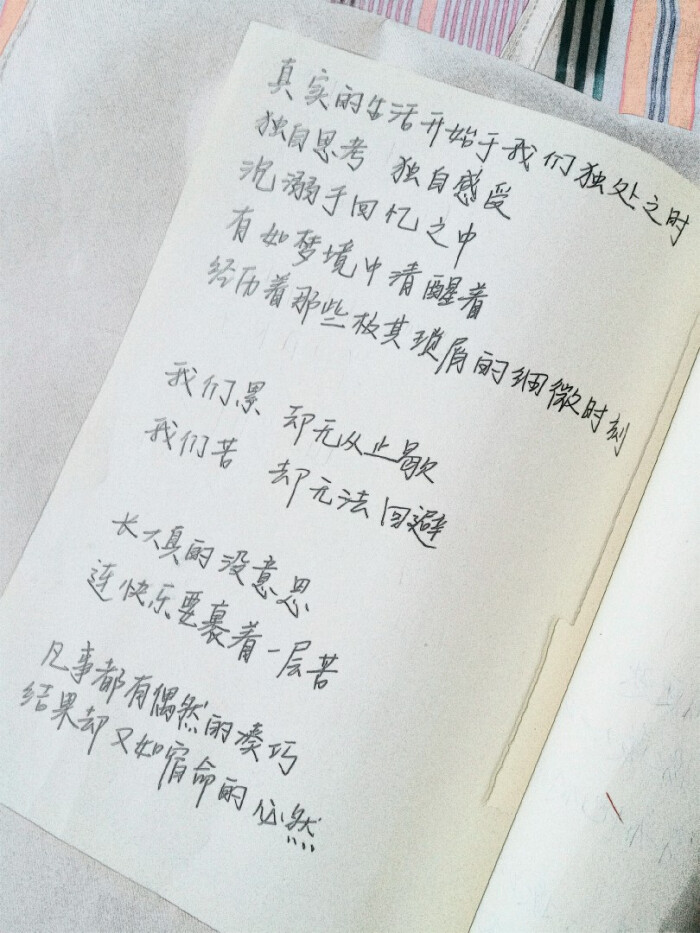 真实的生活开始于我们独处之时
独自思考 独自感受
沉溺于回忆之中
有如梦境中清醒着
经历着那些极其琐屑的细微时刻
我们累 却无从止歇
我们苦 却无法回避
长大真的没意思
连快乐要裹着一层苦
凡事都有偶然的凑巧
结果却又如宿命的必然